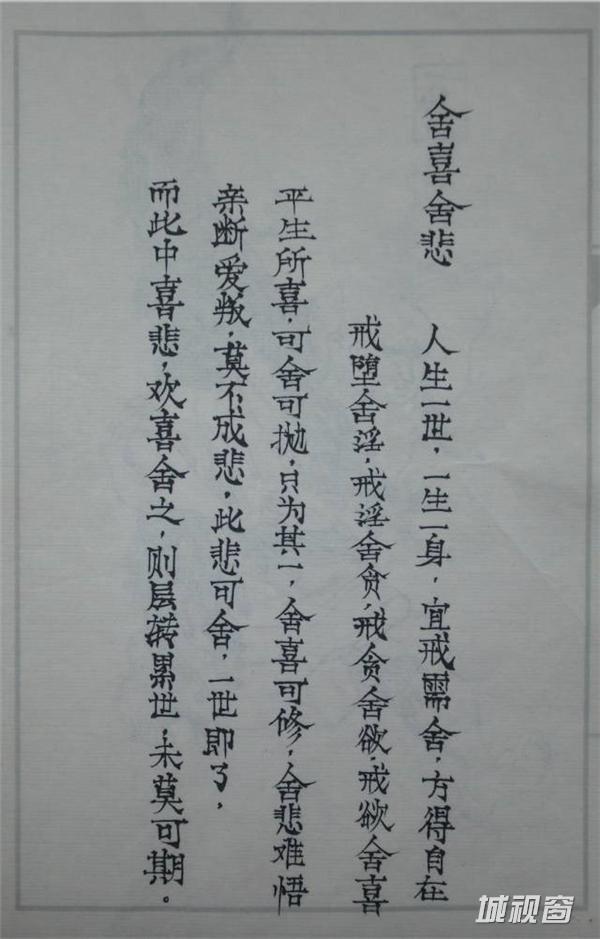 舍喜舍悲
人生一世，一生一身，宜戒需舍，方得自在
戒堕舍淫，戒淫舍贪，戒贪舍欲，戒欲舍喜
平生所喜，可舍可抛，只为其一，舍喜可修，舍悲难悟
亲断爱叛，莫不成悲，此悲可舍，一世即了，
而此中喜悲，欢喜舍之，则层转累世，未莫可期。
城视窗